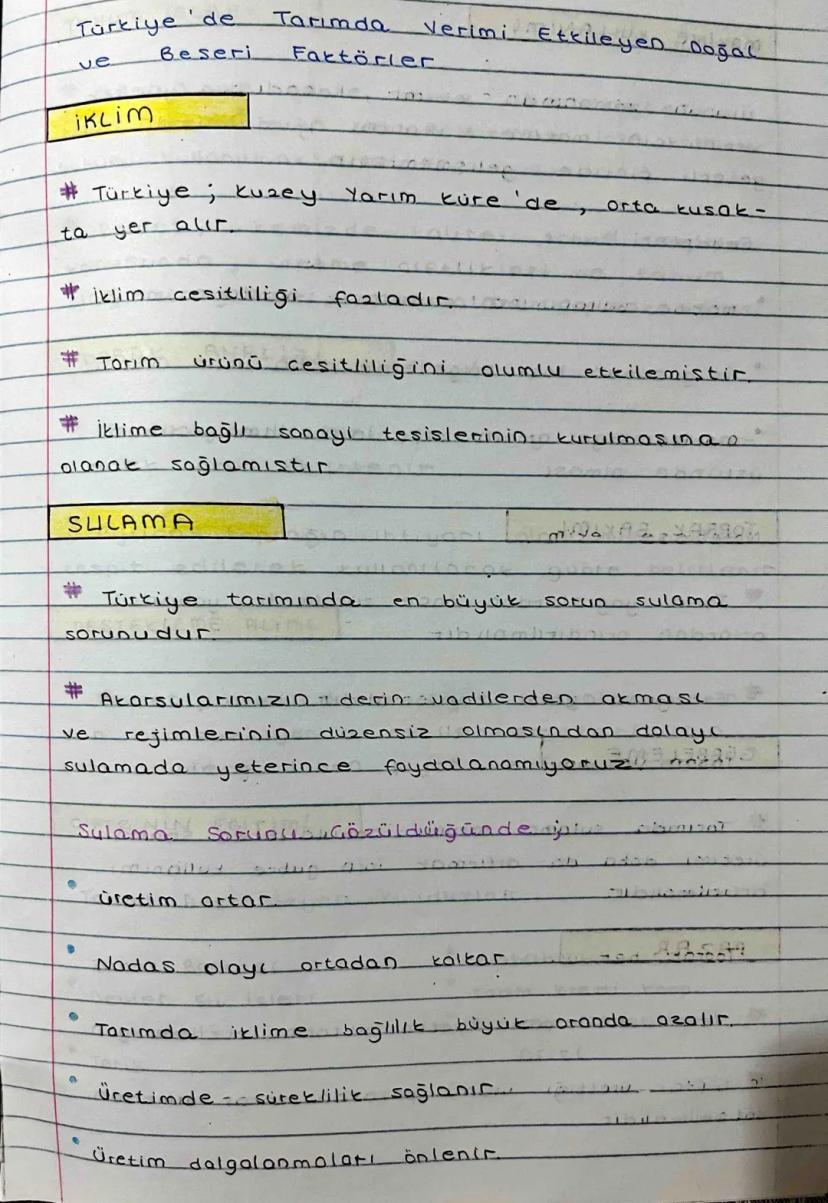 Türkiye'de Tarımda Verimi Etkileyen Doğal
ve Beseri Faktörler
İKLİM
# Türkiye ; Kuzey Yarım Küre'de , orta kusak-
ta yer alır.
# İklim cesitliliği fazladır.
# Tarım ürünü cesitliliğini olumlu etkilemistir.
# İklime bağlı sanayi tesislerinin kurulmasına
olanak sağlamıstır
SULAMA
# Türkiye tarımında en büyük sorun sulama
sorunudur.
# Akarsularımızın derin vadilerden akması
ve rejimlerinin düzensiz olmasından dolayı
sulamada yeterince faydalanamıyoruz.
Sulama Sorunu Çözüldüğünde ;
• Üretim artar.
• Nadas olayı ortadan kalkar
• Tarımda iklime bağlılık büyük oranda azalır.
• Üretimde süreklilik sağlanır.
• Üretim dalgalanmaları önlenir.